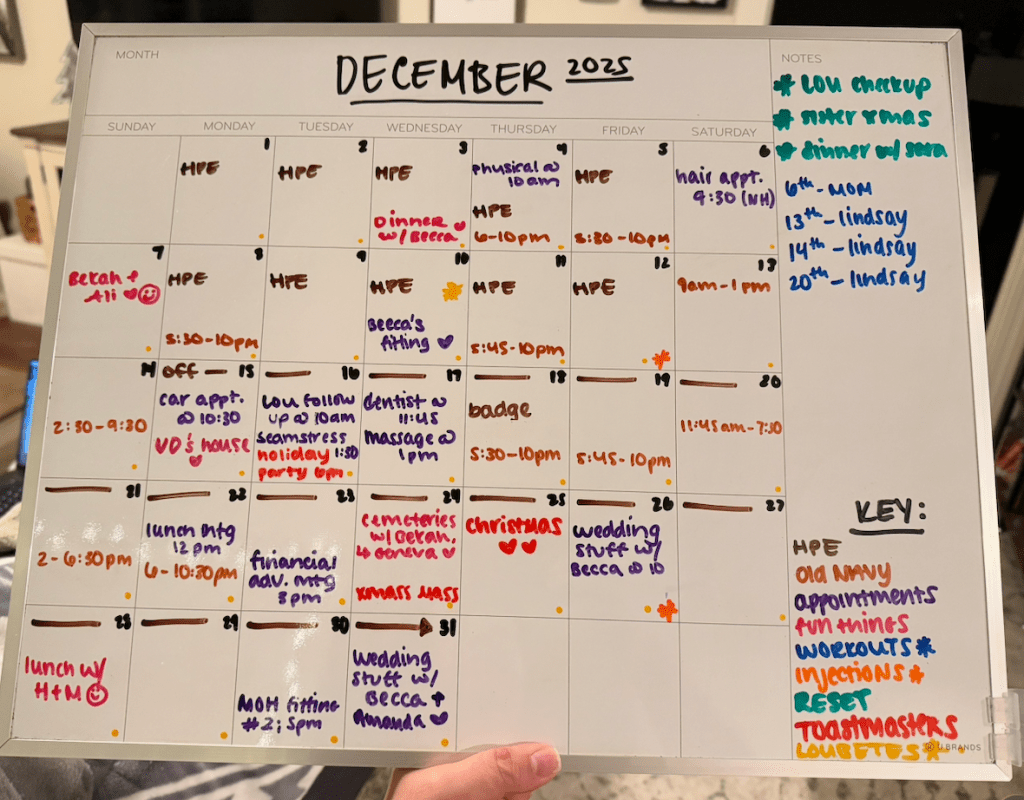 MONTH
DECEMBER 2025
NOTES
* LOU checkup
* sister xmas
* dinner w/ sara
6th - MOM
13th - lindsay
14th - lindsay
20th - lindsay
SUNDAY MONDAY TUESDAY WEDNESDAY THURSDAY FRIDAY SATURDAY
1
HPE
2
HPE
3
HPE
Dinner
w/ Becca
4
physical @
10am
HPE
6-10pm
5
HPE
5:30-10pm
6
hair appt.
9:30 (NH)
7
Bekah +
Ali
8
HPE
5:30-10pm
9
HPE
10
HPE
Becca's
fitting
11
HPE
5:45-10pm
12
HPE
13
9am-1pm
14
2:30-9:30
off
15
car appt.
@ 10:30
VD's house
16
LOU follow
up @ 10am
seamstress
1:30
holiday
party 6pm
17
dentist @
11:45
massage @
1pm
18
badge
5:30-10pm
19
5:45-10pm
20
11:45am-7:30
21
2-6:30pm
22
lunch mtg
12pm
6-10:30pm
23
financial
adv. mtg
3pm
24
cemeteries
w/ Bekah,
Geneva
xmass mass
25
christmas
26
wedding
stuff w/
Becca @ 10
27
28
lunch w/
H+M
29
30
MOH fitting
#2: 5pm
31
wedding
stuff w/
Becca +
Amanda
KEY:
HPE
Old NAVY
appointments
fun things
WORKOUTS *
injections *
RESET
TOASTMASTERS
LOUBETES *
U BRANDS